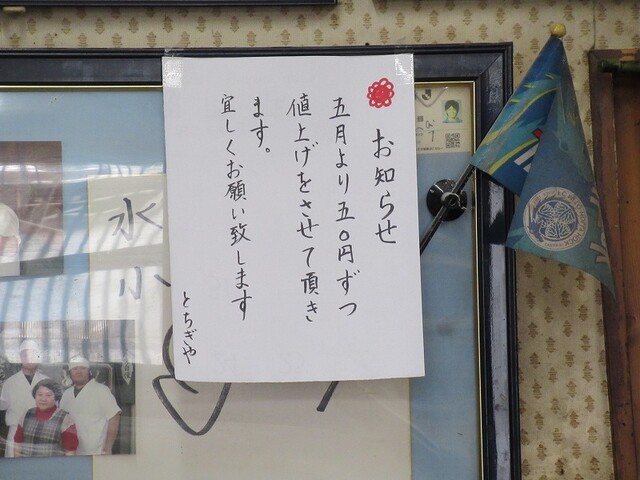 お知らせ
五月より五〇円ずつ
値上げをさせて頂き
ます。
宜しくお願い致します
とちぎや
水
小